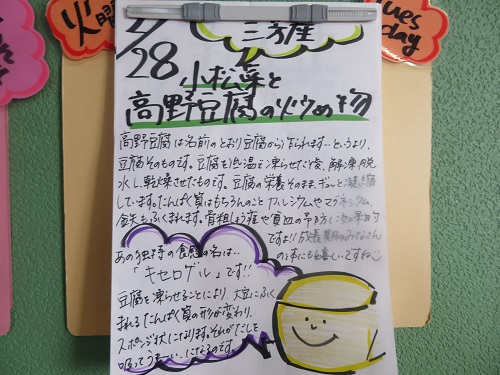 火曜
Tues
day
28
三芳産
小松菜と
高野豆腐の炒め物
高野豆腐は名前のとおり豆腐から作られます…というより、
豆腐そのものです。豆腐を低温で凍らせた後、解凍・脱
水し、乾燥させたものです。豆腐の栄養そのまま、ギュッと凝縮
しています。たんぱく質はもちろんのことカルシウムやマグネシウム、
鉄もふくまれます。骨粗しょう症や貧血の予防に効果的
ですよ!!成長期のみなさん
の体にも嬉しいですね
あの独特の食感の名は…
「キセロゲル」です!!
豆腐を凍らせることにより、大豆にふく
まれるたんぱく質の形が変わり、
スポンジ状になります。それがだしを
吸ってうまーい、になるのです。